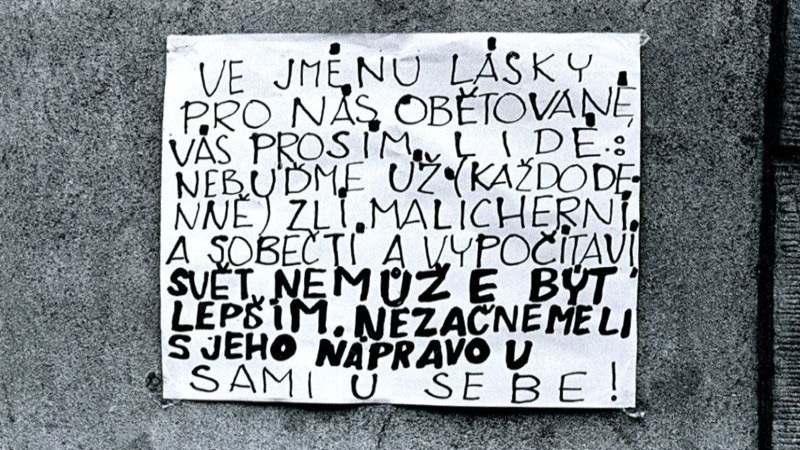 VE JMÉNU LÁSKY
PRO NÁS OBĚTOVANÉ,
VÁS PROSÍM, LIDÉ:
NEBUĎME UŽ (KAŽDODE-
NNĚ) ZLÍ, MALICHERNÍ,
A SOBEČTÍ A VYPOČÍTAVÍ,
SVĚT NEMŮŽE BÝT
LEPŠÍM, NEZAČNEMELI
S JEHO NÁPRAVO U
SAMI U SEBE!